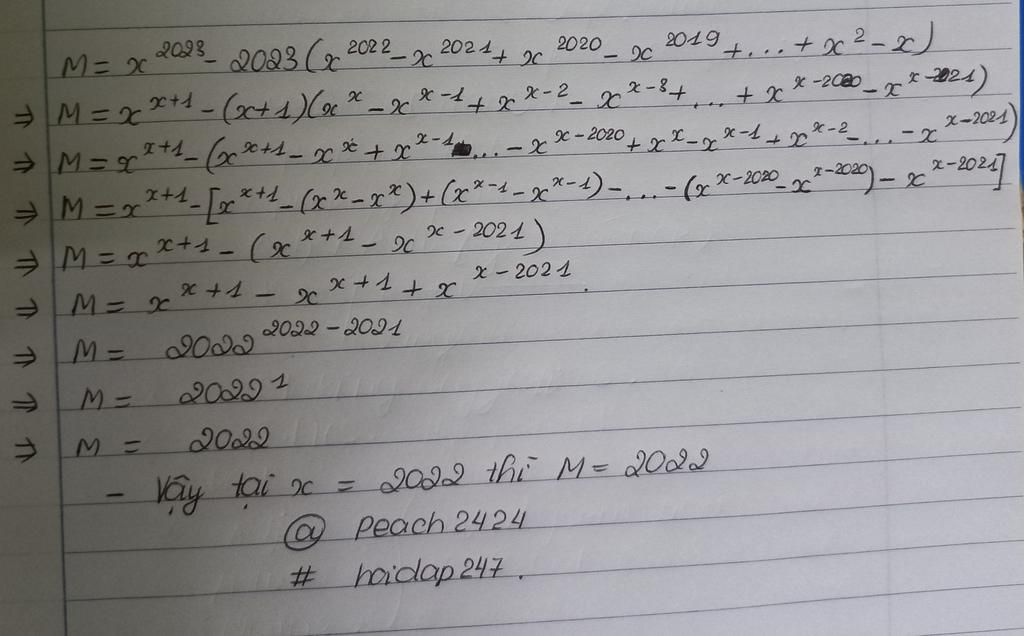 M = x^2023 - 2023(x^2022 - x^2021 + x^2020 - x^2019 + ... + x^2 - x)
⇒ M = x^x+1 - (x+1)(x^x - x^x-1 + x^x-2 - x^x-3 + ... + x^x-2020 - x^x-2021)
⇒ M = x^x+1 - (x^x+1 - x^x + x^x-1 ... - x^x-2020 + x^x - x^x-1 + x^x-2 - ... - x^x-2021)
⇒ M = x^x+1 - [x^x+1 - (x^x - x^x) + (x^x-1 - x^x-1) - ... - (x^x-2020 - x^x-2020) - x^x-2021]
⇒ M = x^x+1 - (x^x+1 - x^x-2021)
⇒ M = x^x+1 - x^x+1 + x^x-2021.
⇒ M = 2022^2022-2021
⇒ M = 2022^1
⇒ M = 2022
- Vậy tại x = 2022 thì M = 2022
@ peach2424
# hoidap247.